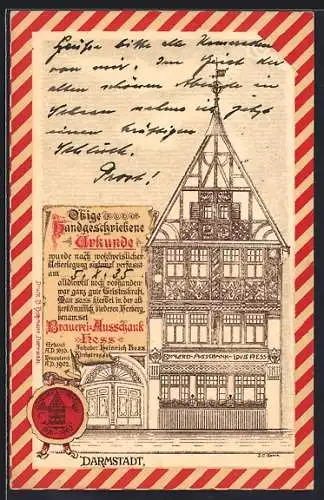 Grüße bitte alle Kameraden
von mir. Im Geist der
alten schönen Abende in
nehme ich jetzt
einen kräftigen
Schluck.
Prost!
Obige
Handgeschriebene
Urkunde
wurde nach wohlweislicher
Ueberlegung eigenst verfasst
am 5. X. 35
alldieweil noch vorhanden
war ganz gute Geisteskraft.
Man sass hierbei in der alt
herkömmlich biederen Herberg,
benamset
Brauerei-Ausschank
Hess
Inhaber Heinrich Hess
Kirchstrasse
Erbaut
A.D. 1610.
Renoviert
A.D. 1902.
BRAUEREI-AUSSCHANK LOUIS HESS
DARMSTADT,